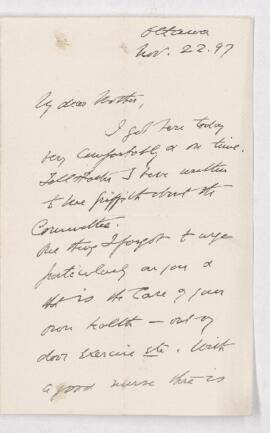 Ottawa
Nov. 22.97
My dear Mother,
I got here today
very comfortably & on time.
Tell Father I have written
to Lue Griffith about the
Committee.
One thing I forgot to urge
particularly on you &
that is the Care of your
own health – out of
door exercise etc. With
a good nurse there is